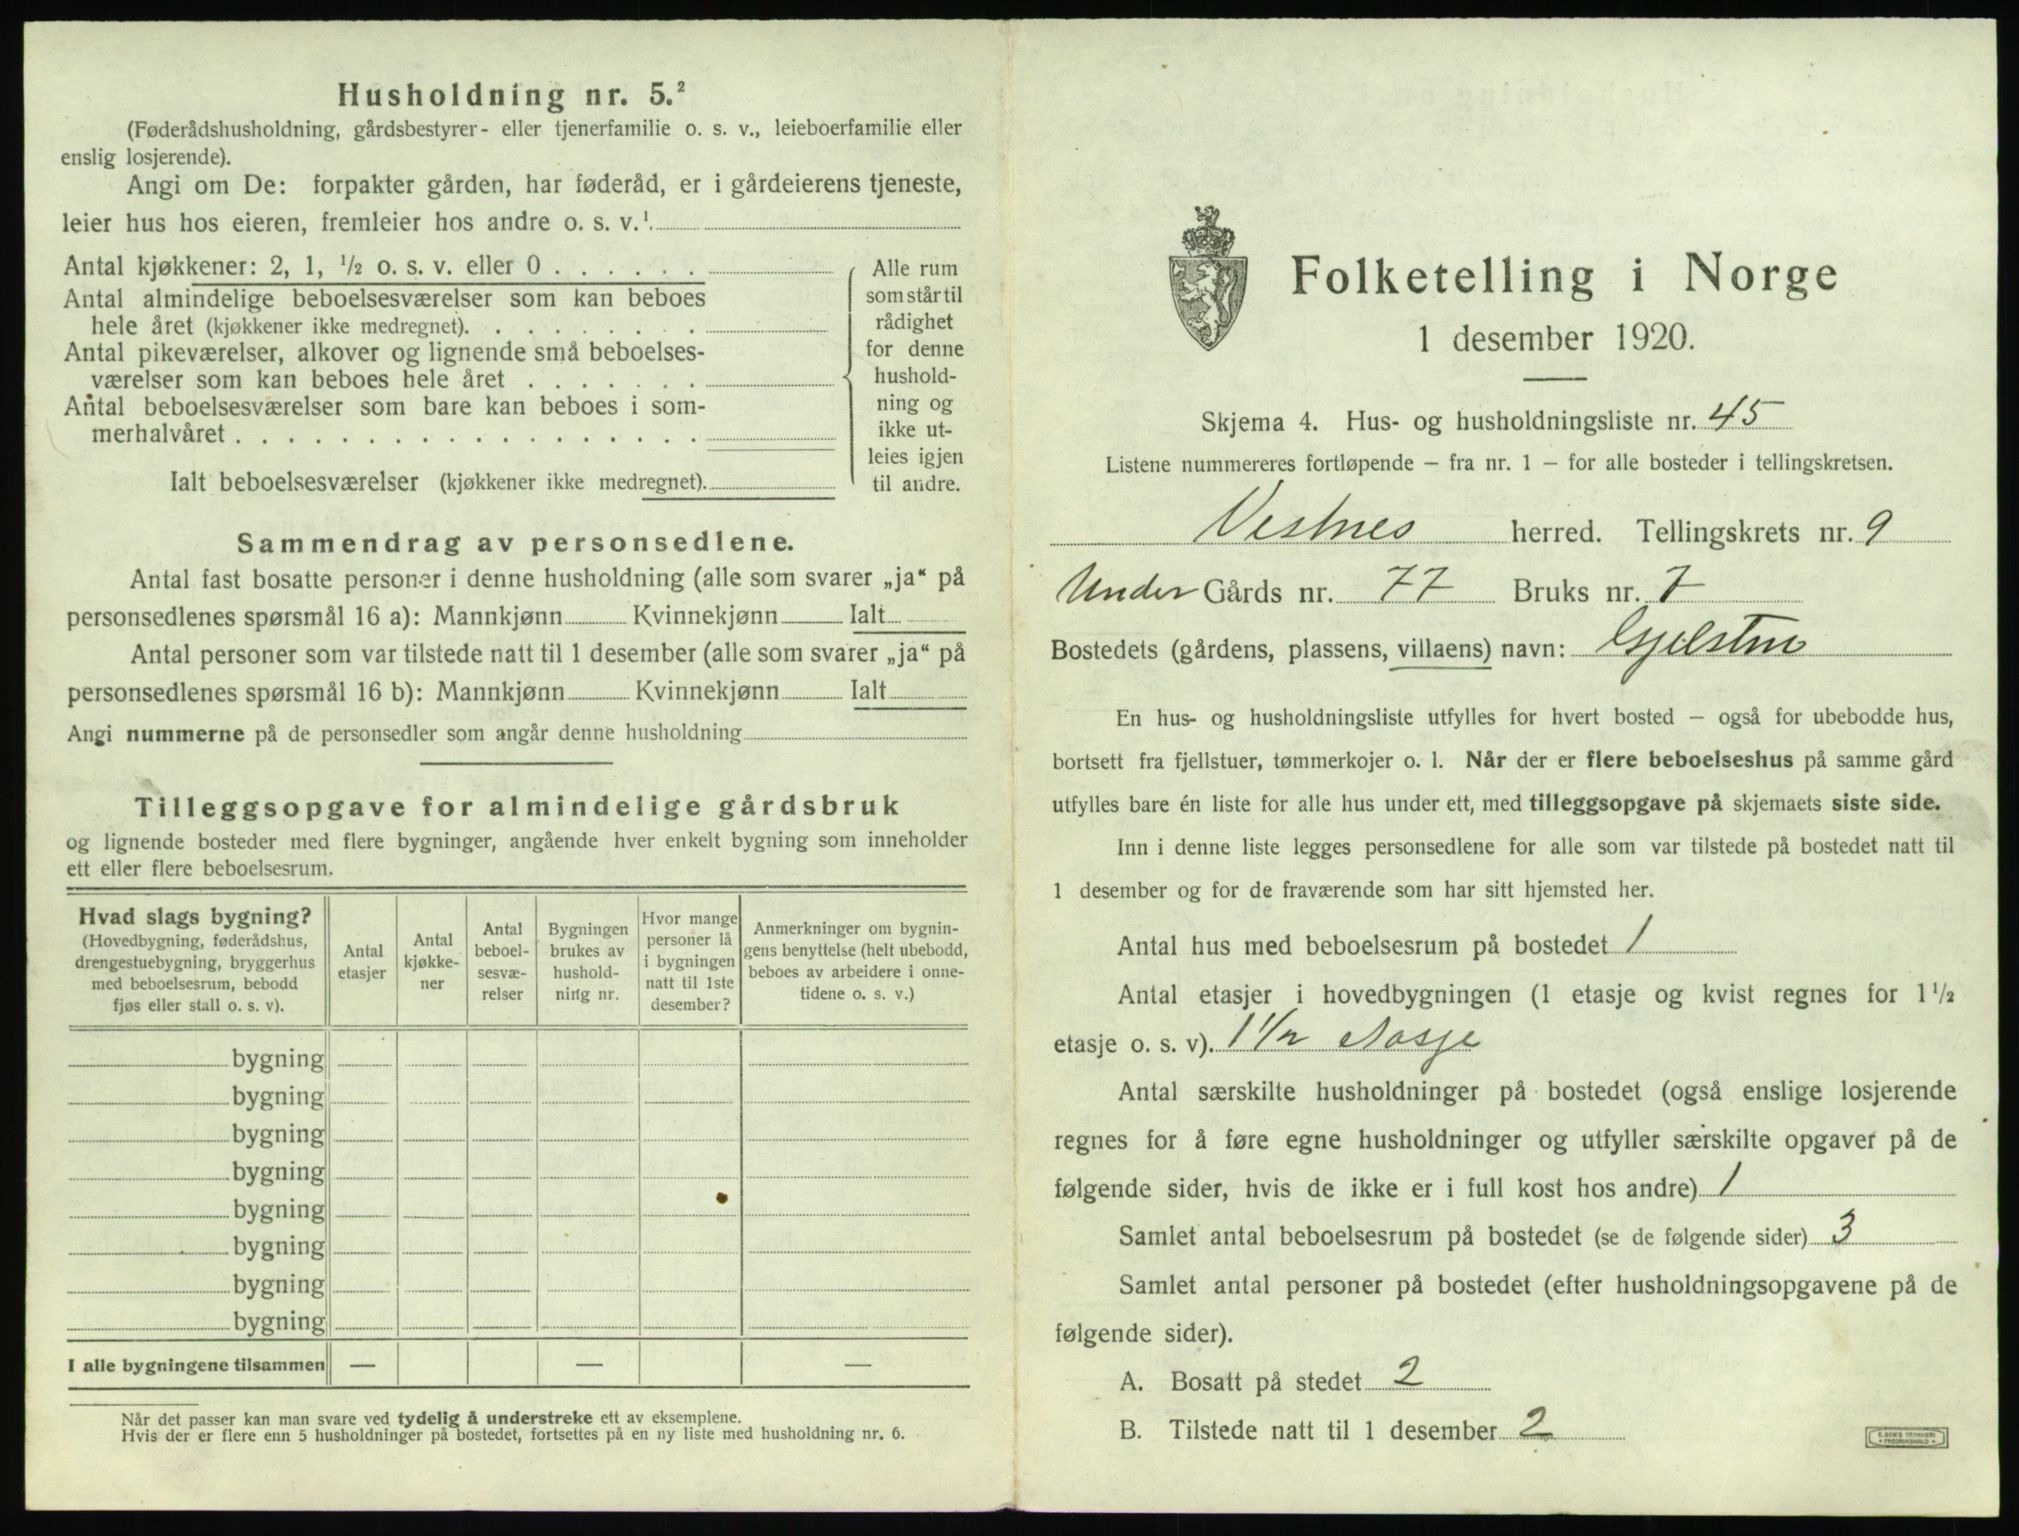 Husholdning nr. 5.²
(Føderådshusholdning, gårdsbestyrer- eller tjenerfamilie o. s. v., leieboerfamilie eller
enslig losjerende).
Angi om De: forpakter gården, har føderåd, er i gårdeierens tjeneste,
leier hus hos eieren, fremleier hos andre o. s. v.¹
Antal kjøkkener: 2, 1, ½ o. s. v. eller 0 . . . . . .
Antal almindelige beboelsesværelser som kan beboes
hele året (kjøkkener ikke medregnet). . . . . . . . .
Antal pikeværelser, alkover og lignende små beboelses-
værelser som kan beboes hele året . . . . . . .
Antal beboelsesværelser som bare kan beboes i som-
merhalvåret . . . . . . . . . . . . . . . . . .
Ialt beboelsesværelser (kjøkkener ikke medregnet).
Alle rum
som står til
rådighet
for denne
hushold-
ning og
ikke ut-
leies igjen
til andre.
Sammendrag av personsedlene.
Antal fast bosatte personer i denne husholdning (alle som svarer „ja“ på
personsedlenes spørsmål 16 a): Mannkjønn Kvinnekjønn Ialt
Antal personer som var tilstede natt til 1 desember (alle som svarer „ja“ på
personsedlenes spørsmål 16 b): Mannkjønn Kvinnekjønn Ialt
Angi nummerne på de personsedler som angår denne husholdning
Tilleggsopgave for almindelige gårdsbruk
og lignende bosteder med flere bygninger, angående hver enkelt bygning som inneholder
ett eller flere beboelsesrum.
Hvad slags bygning?
(Hovedbygning, føderådshus,
drengestuebygning, bryggerhus
med beboelsesrum, bebodd
fjøs eller stall o. s. v).
Antal
etasjer
Antal
kjøkke-
ner
Antal
beboel-
sesvæ-
relser
Bygningen
brukes av
hushold-
ning nr.
Hvor mange
personer lå
i bygningen
natt til 1ste
desember?
Anmerkninger om bygnin-
gens benyttelse (helt ubebodd,
beboes av arbeidere i onne-
tidene o. s. v.)
bygning
bygning
bygning
bygning
bygning
bygning
bygning
bygning
I alle bygningene tilsammen — — —
Når det passer kan man svare ved tydelig å understreke ett av eksemplene.
Hvis der er flere enn 5 husholdninger på bostedet, fortsettes på en ny liste med husholdning nr. 6.
Folketelling i Norge
1 desember 1920.
Skjema 4. Hus- og husholdningsliste nr. 45
Listene nummereres fortløpende – fra nr. 1 – for alle bosteder i tellingskretsen.
Vestnes herred. Tellingskrets nr. 9
Under Gårds nr. 77 Bruks nr. 7
Bostedets (gårdens, plassens, villaens) navn: Gjelsten
En hus- og husholdningsliste utfylles for hvert bosted – også for ubebodde hus,
bortsett fra fjellstuer, tømmerkojer o. l. Når der er flere beboelseshus på samme gård
utfylles bare én liste for alle hus under ett, med tilleggsopgave på skjemaets siste side.
Inn i denne liste legges personsedlene for alle som var tilstede på bostedet natt til
1 desember og for de fraværende som har sitt hjemsted her.
Antal hus med beboelsesrum på bostedet 1
Antal etasjer i hovedbygningen (1 etasje og kvist regnes for 1½
etasje o. s. v). 1½
Antal særskilte husholdninger på bostedet (også enslige losjerende
regnes for å føre egne husholdninger og utfyller særskilte opgaver på de
følgende sider, hvis de ikke er i full kost hos andre) 1
Samlet antal beboelsesrum på bostedet (se de følgende sider) 3
Samlet antal personer på bostedet (efter husholdningsopgavene på de
følgende sider).
A. Bosatt på stedet 2
B. Tilstede natt til 1 desember 2